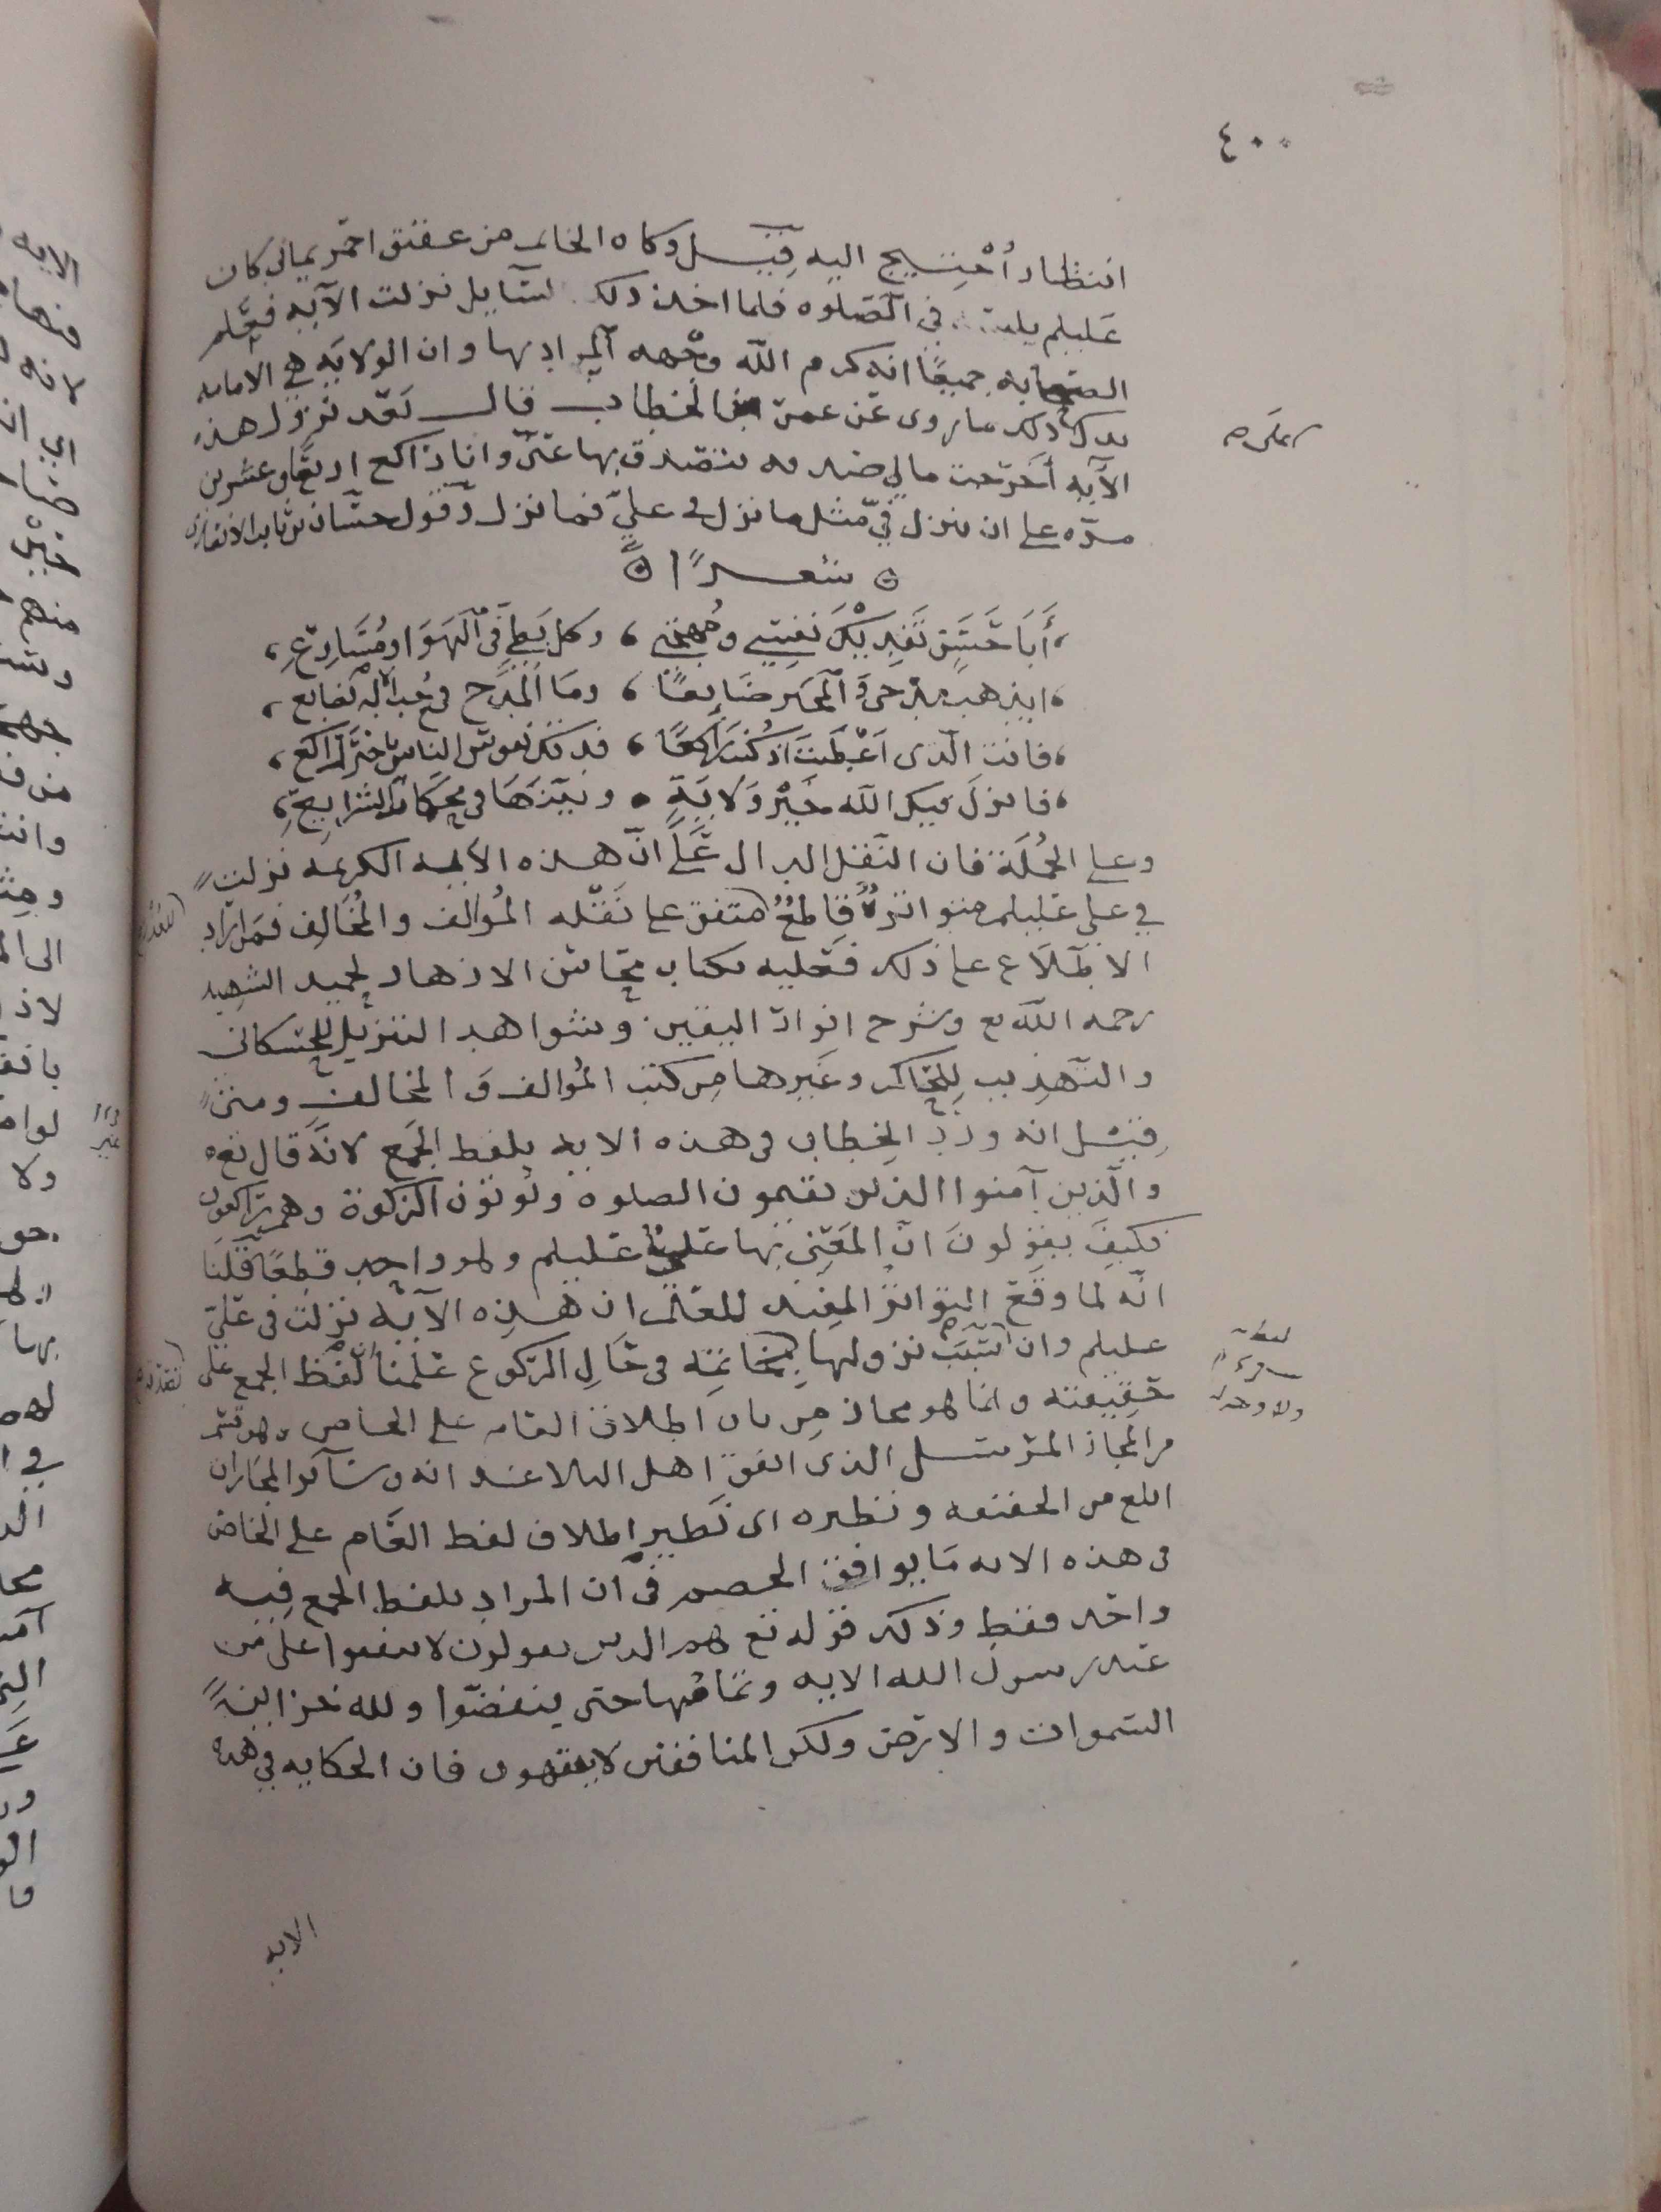 ٤٠٠
انتظار أحتيج اليه قيل وكان الخاتم من عقيق احمر يماني كان
عليلم في الصلوه فلما اخذ ذلك السايل نزلت الآيه فعلم
الصحابه جميعًا انه كرم الله وجهه المراد بها وان الولايه هي الامامه
يدل ذلك ما روى عن عمر الخطاب قال بعد نزول هذه
الآيه أخرجت مالي صدقه يتصدق بها عني وانا راكع اربعًا وعشرين
مره على ان ينزل فيّ مثل ما نزل في عليّ فما نزل وقول حسّان بن ثابت الانصاري
شعرًا
أبا حسن تفديك نفسي ومهجتي ، وكل بطي في الهوا ومسارع ،
ايذهب مدحي والمحبر ضايعًا ، وما المدح في جنب الاله بضايع ،
فانت الذي اعطيت اذ كنت راكعًا ، فدتك نفوس الناس يا خير راكع ،
فانزل فيك الله خير ولاية ، وبينها في محكمات الشرايع ،
وعلى الجملة فان النقل الدال على انّ هذه الآيه الكريمه نزلت
في علي عليلم متواترٌ قاطعٌ متفق على نقله المؤالف والمخالف فمن اراد
الاطلاع على ذلك فعليه بكتاب محاسن الازهار لحميد الشهيد
رحمه الله تع وشرح انوار اليقين وشواهد التنزيل للحسكاني
والتهذيب للحاكم وغيرها من كتب المؤالف والمخالف ومتى
قيل انه ورد الخطاب في هذه الايه بلفظ الجمع لانه قال تع
والذين آمنوا الذين يقيمون الصلوه ويؤتون الزكوة وهم راكعون
فكيف يقولون انّ المعني بها عليٌ عليلم وهو واحد قطعًا قلنا
انّه لما وقع التواتر المفيد للعلم ان هذه الآيه نزلت في عليّ
عليلم وان سبب نزولها بخاتمه في حال الركوع علمنا لفظ الجمع على
حقيقته وانما هو مجاز من باب اطلاق العام على الخاص وهو قسم
من المجاز المرسل الذي اتفق اهل البلاغه انه وساير المجازات
ابلغ من الحقيقه ونظيره اي نظير اطلاق لفظ العام على الخاص
في هذه الايه ما يوافق الخصم في ان المراد بلفظ الجمع فيه
واحد فقط وذلك قوله تع هم الذين يقولون لا تنفقوا على من
عند رسول الله الايه وتمامها حتى ينفضّوا ولله خزاين
السموات والارض ولكن المنافقين لا يفقهون فان الحكايه في هذه
الايه